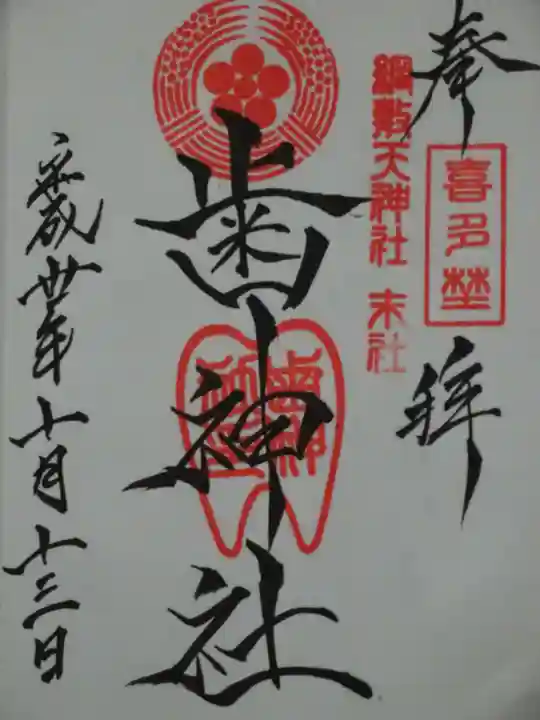 奉拝
喜多埜
綱敷天神社 末社
歯神社
歯神
平成卅年十月十三日